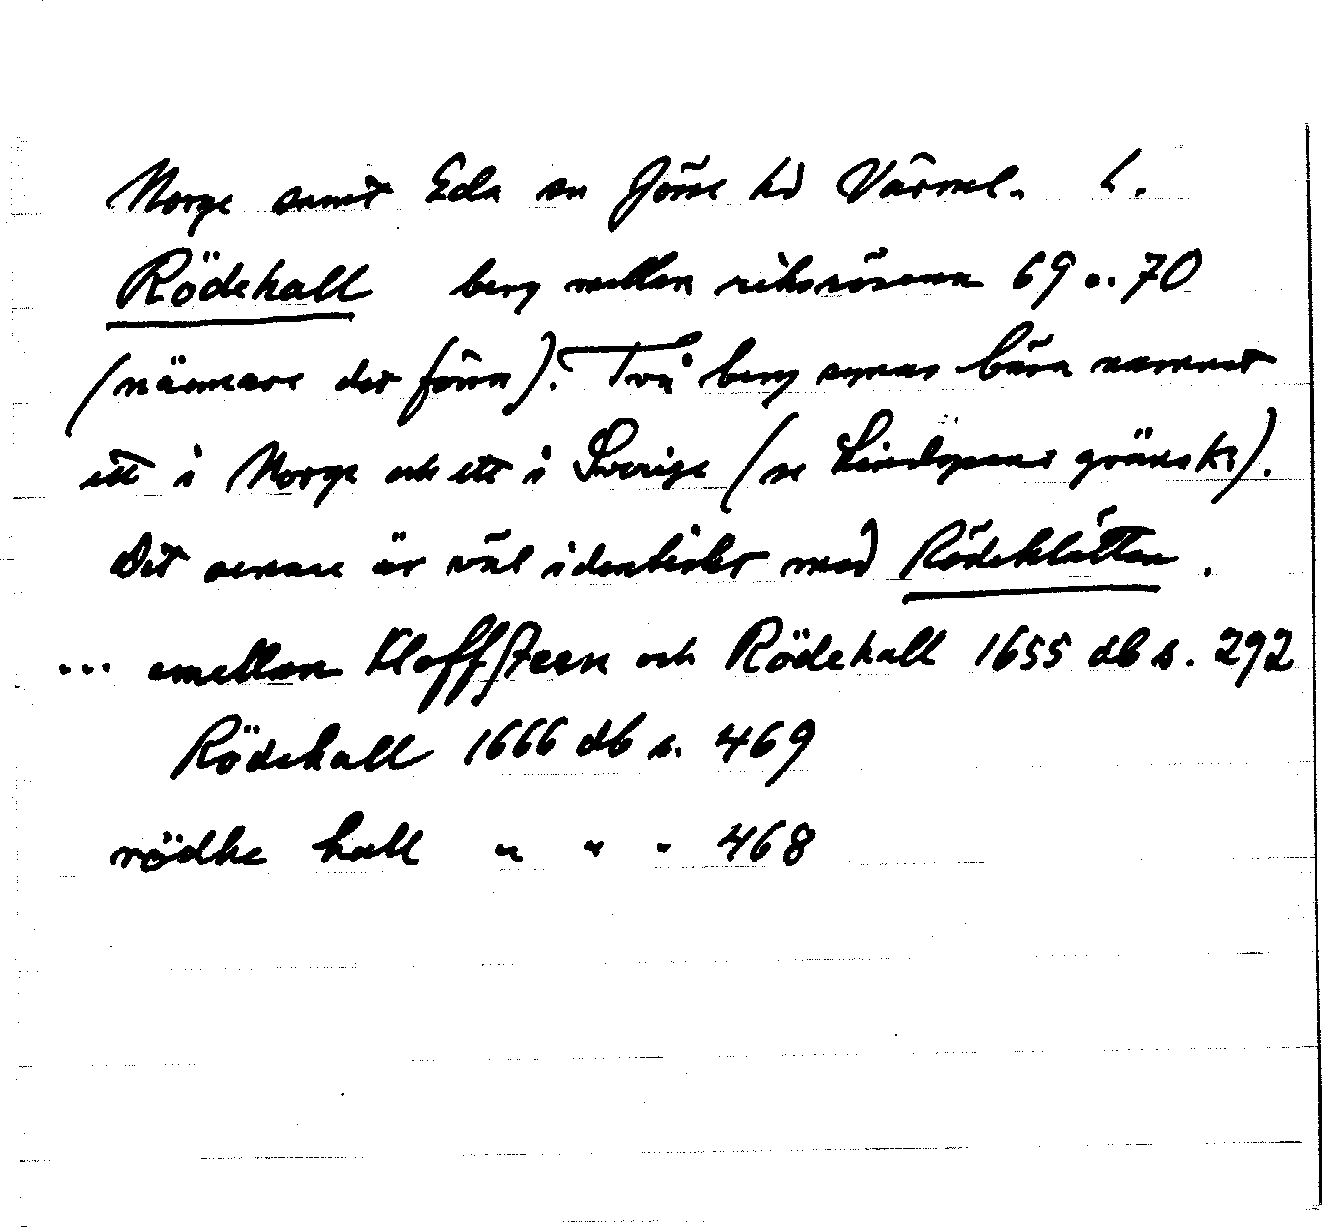 Norge samt Eda sn Jösse hd Värml. l.
Rödehall berg mellan riksrösena 69 o. 70
(närmare det förra). Två berg synas bära namnet
ett i Norge och ett i Sverige (se gränsk:).
Det senare är väl identiskt med Rödeklätten.
... emellan Kloffsteen och Rödehall 1655 db s. 292
Rödehall 1666 db s. 469
rödhe hall " " " 468